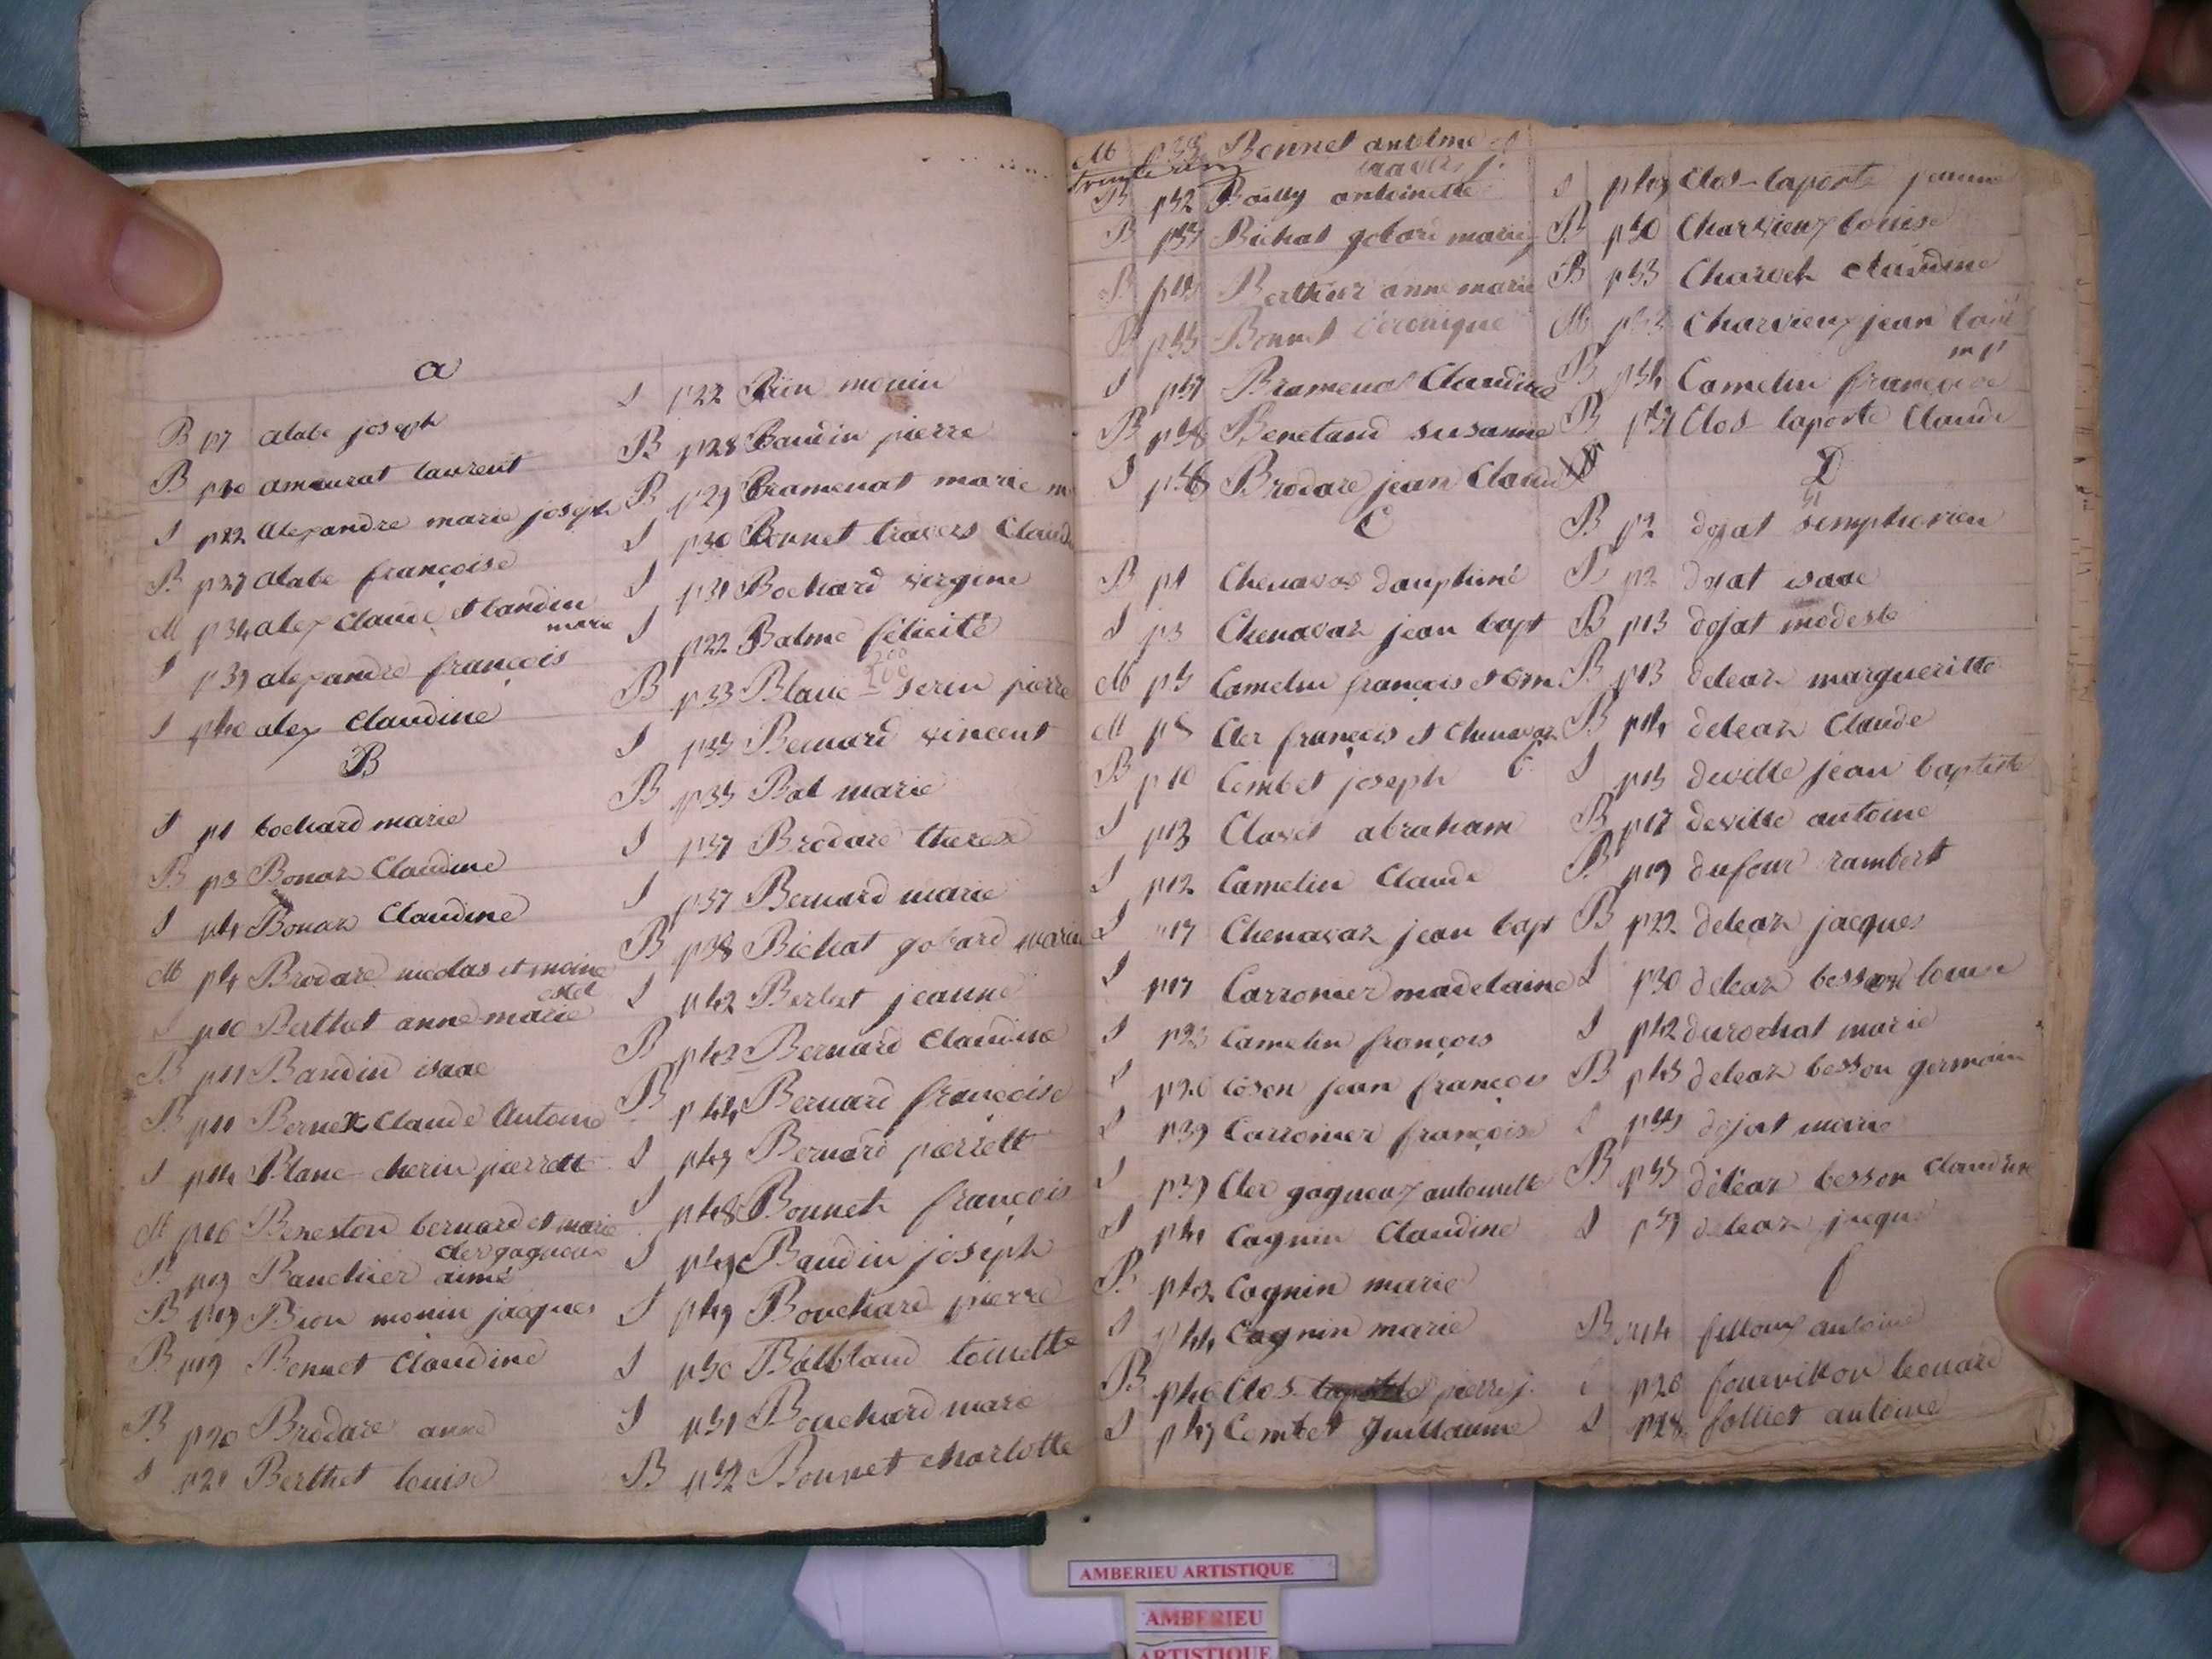 a
B p7 alabe joseph
B p10 amaurat laurent
S p22 alexandre marie joseph
B p37 alabe françoise
M p34 alex Claude et landin
marie
S p39 alexandre françois
S p40 alex Claudine
B
S p1 bochard marie
B p3 Bonaz Claudine
S p4 Bonaz Claudine
M p4 Brodare nicolas et moine
S p10 Berthet anne marie
B p11 Baudin isaac
B p11 Bernex Claude Antoine
S p14 Blanc cherin pierrette
M p16 Beneston bernard et marie
cler gagneux
B p19 Bauchier aimé
B p19 Bion monin jacques
B p19 Bonnet Claudine
B p20 Brodare anne
S p21 Berthet louise
S p22 Bion monin
B p28 Baudin pierre
B p29 Bramenat marie m
S p30 Bonnet travers Claud
S p31 Bochard virgine
S p22 Balme félicité
B p33 Blanc serin pierre
S p35 Bernard vincent
B p35 Bal marie
S p37 Brodare therese
S p37 Bernard marie
B p38 Bichat gobard marie
S p42 Berlict jeanne
B p43 Bernard Claudine
B p44 Bernard françoise
S p45 Bernard pierrett
S p48 Bonnet françois
S p49 Baudin joseph
S p49 Bouchard pierre
S p50 Balbland toinette
S p51 Bouchard marie
B p52 Bonnet charlotte
M p38 Bonnet antelme et
B p52 Bailly antoinette
B p53 Bichat gobard marie
B Berthier anne marie
B p55 Bonnet véronique
S p57 Bramenat Claudine
B p58 Benetand susanne
S p56 Brodare jean Claud
C
B p1 Chenavas dauphiné
S p3 Chenavaz jean bapt
M p5 Camelin françois et
M p5 Cler françois et Chenavaz
B p10 Combet joseph
S p13 Clavel abraham
S p12 Camelin Claude
S p17 Chenavaz jean bapt
S p17 Carronier madelaine
S Camelin françois
S p26 Coson jean françois
S p39 Carronier françoise
S p39 Cler gagneux antoinette
S p41 Cagnin Claudine
B p42 Cagnin marie
S p44 Cagnin marie
B p46 Clos pierre j.
S p47 Combet Guillaume
S p49 Clos-laporte jeanne
B p50 Charvieux louise
B p53 Charvet claudine
M p53 Charvieux jean
B p54 Camelin françoise
B p57 Clos laporte Claude
D
B p2 dojat simphorien
B p2 dojat isaac
B p13 dojat modeste
B p13 deleaz margueritte
B p14 deleaz Claude
S p15 deville jean baptiste
B p17 deville antoine
B p19 dufour rambert
B p22 deleaz jacques
S p30 deleaz besson louise
S p42 durochat marie
B p45 deleaz besson germain
S p45 dojat marie
B p55 déléaz besson claudine
S p59 deleaz jacque
f
B p14 filloux antoine
p26 fourvillon leonard
S p28 folliet antoine
AMBERIEU ARTISTIQUE
AMBERIEU
ARTISTIQUE